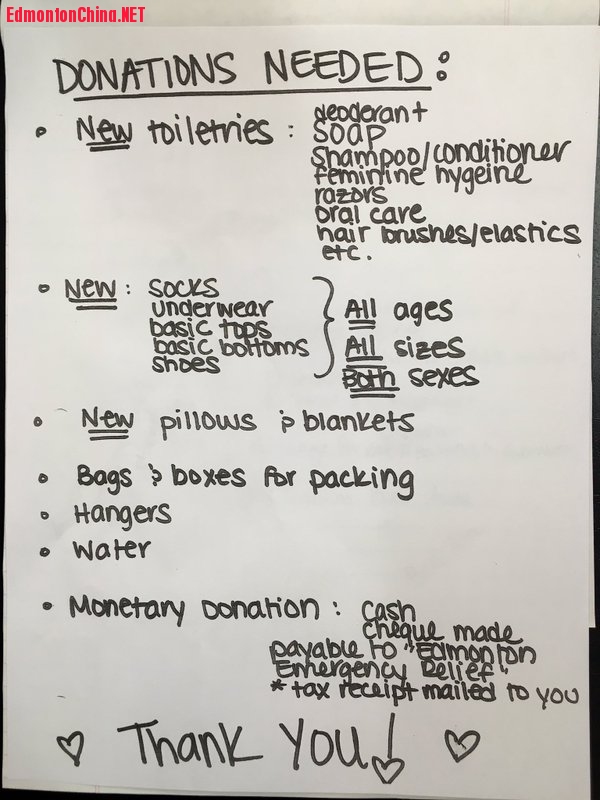 EdmontonChina.NET
DONATIONS NEEDED:
• New toiletries : deoderant
soap
shampoo/conditioner
feminine hygeine
razors
oral care
hair brushes/elastics
etc.
• New : socks
underwear
basic tops
basic bottoms
shoes
All ages
All sizes
Both sexes
• New pillows & blankets
• Bags & boxes for packing
• Hangers
• Water
• Monetary Donation : cash
cheque made
payable to "Edmonton
Emergency Relief"
* tax receipt mailed to you
♡ Thank You! ♡